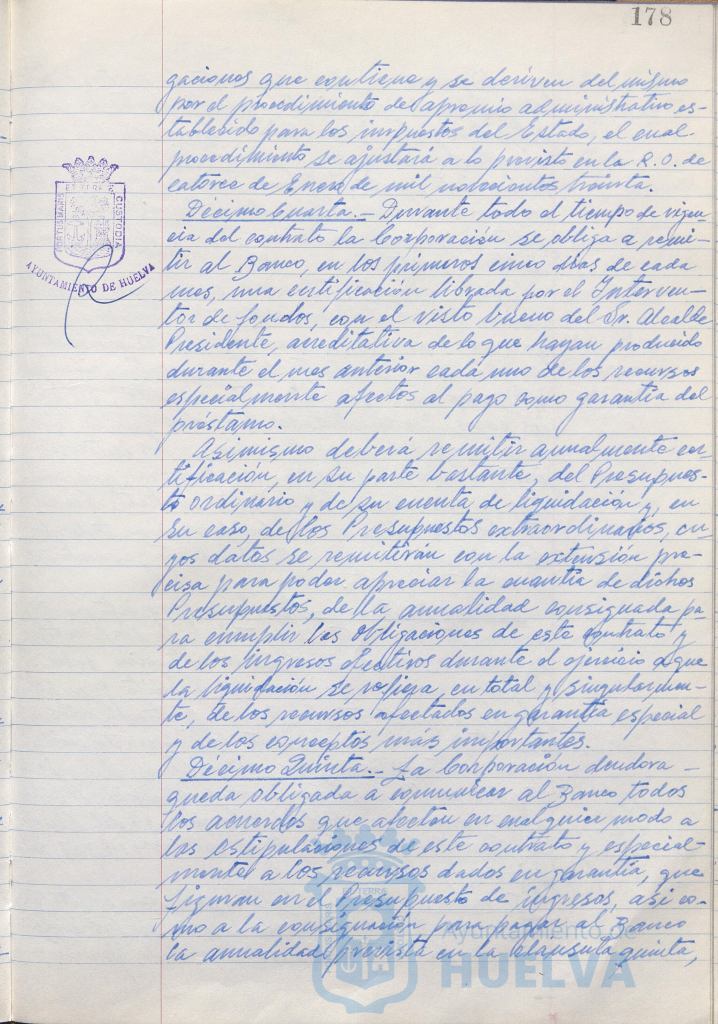 178
gaciones que contiene y se deriven del mismo
por el procedimiento de apremio administrativo es-
tablecido para los impuestos del Estado, el cual
procedimiento se ajustará a lo previsto en la R. O. de
catorce de Enero de mil novecientos treinta.
Décimo Cuarta.- Durante todo el tiempo de vigen-
cia del contrato la Corporación se obliga a remi-
tir al Banco, en los primeros cinco dias de cada
mes, una certificación librada por el Interven-
tor de fondos, con el visto bueno del Sr. Alcalde
Presidente, acreditativa de lo que hayan producido
durante el mes anterior cada uno de los recursos
especialmente afectos al pago como garantia del
préstamo.
Asimismo deberá remitir anualmente cer-
tificación, en su parte bastante, del Presupues-
to ordinario y de su cuenta de liquidación y, en
su caso, de los Presupuestos extraordinarios, cu-
yos datos se remitirán con la extensión pre-
cisa para poder apreciar la cuantia de dichos
Presupuestos, de la anualidad consignada pa-
ra cumplir las obligaciones de este contrato y
de los ingresos efectivos durante el ejercicio a que
la liquidación se refiera, en total y singularmen-
te, de los recursos afectados en garantía especial
y de los conceptos más importantes.
Décimo Quinta.- La Corporación deudora -
queda obligada a comunicar al Banco todos
los acuerdos que afecten en cualquier modo a
las estipulaciones de este contrato y especial-
mente a los recursos dados en garantía, que
figuran en el Presupuesto de ingresos, asi co-
mo a la consignación para pagar al Banco
la anualidad prevista en la cláusula quinta,
PORTUS MARIS ET TERRAE CUSTODIA
AYUNTAMIENTO DE HUELVA
Ayuntamiento de
HUELVA